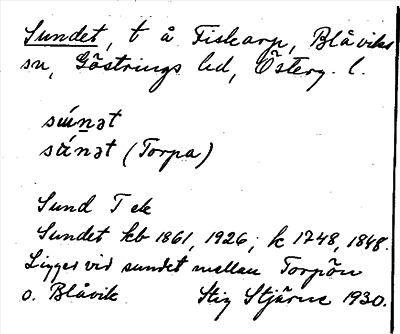 Sundet, t å Fiskarp, Blåviks
sn, Göstrings hd, Österg. l.
sɯ́nət
sɑ́nət (Torpa)
Sund T ek
Sundet kb 1861, 1926; k 1748, 1848.
Ligger vid sundet mellan Torpön
o. Blåvik Stig Stjärne 1930.